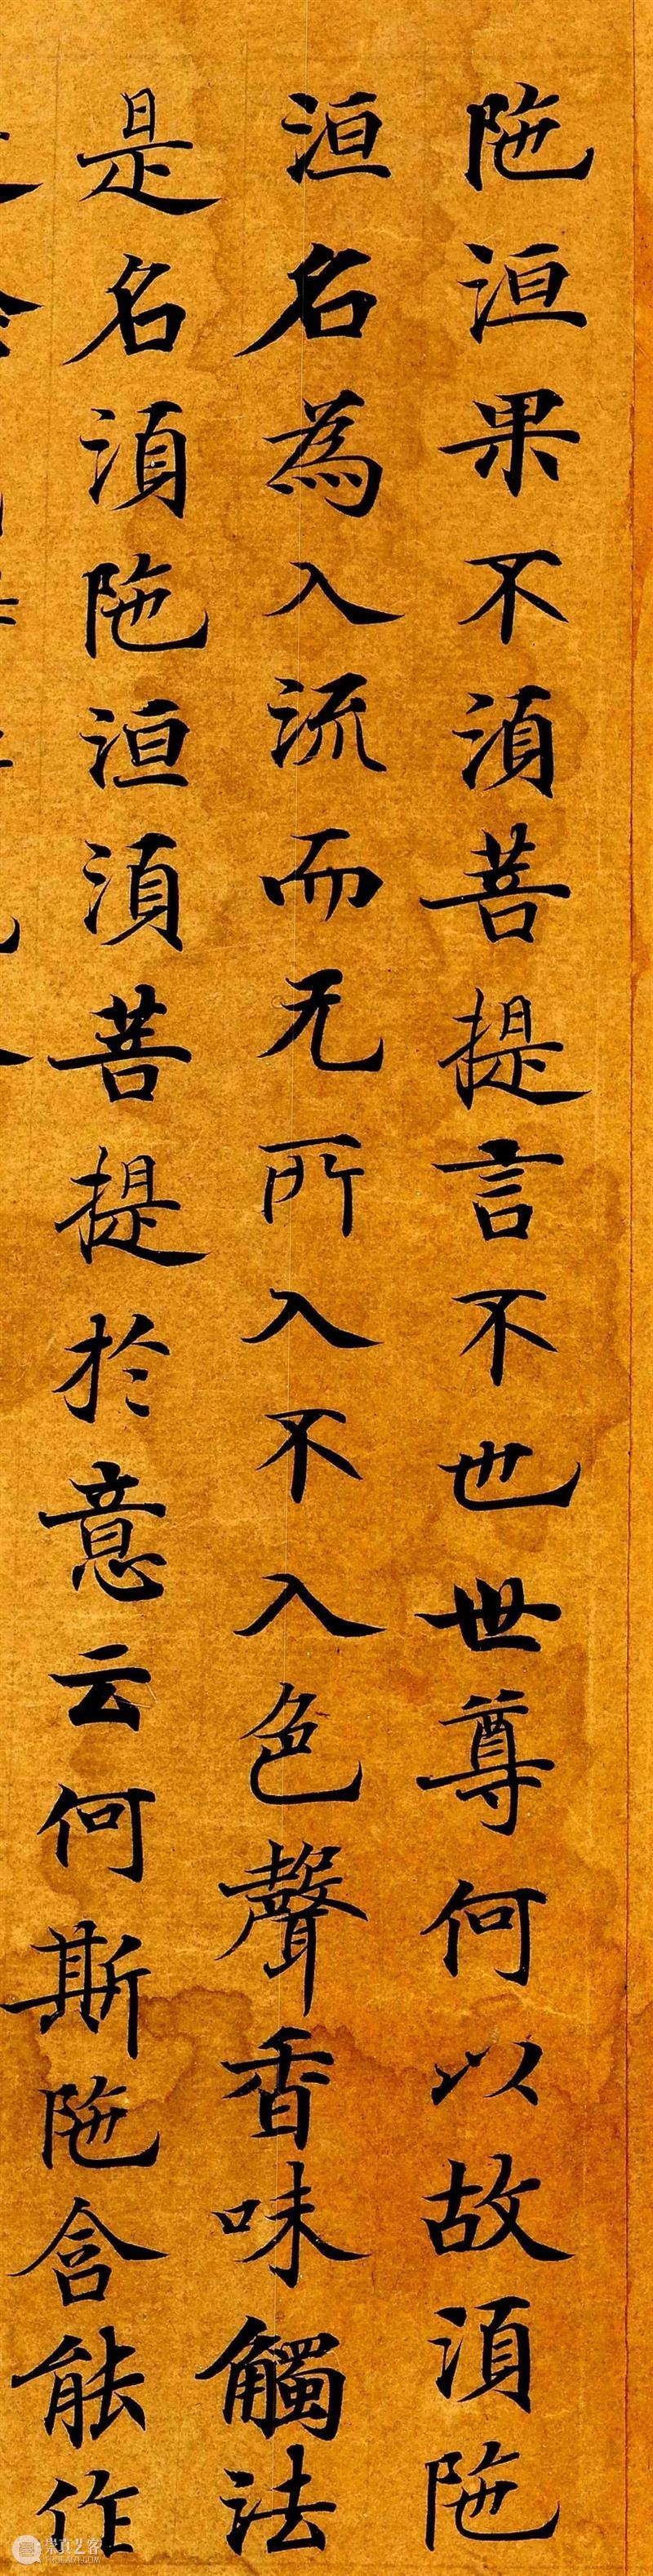 陁洹果不湏菩提言不也世尊何以故湏陁
洹名為入流而无所入不入色聲香味觸法
是名湏陁洹湏菩提於意云何斯陁含能作
崇真艺客